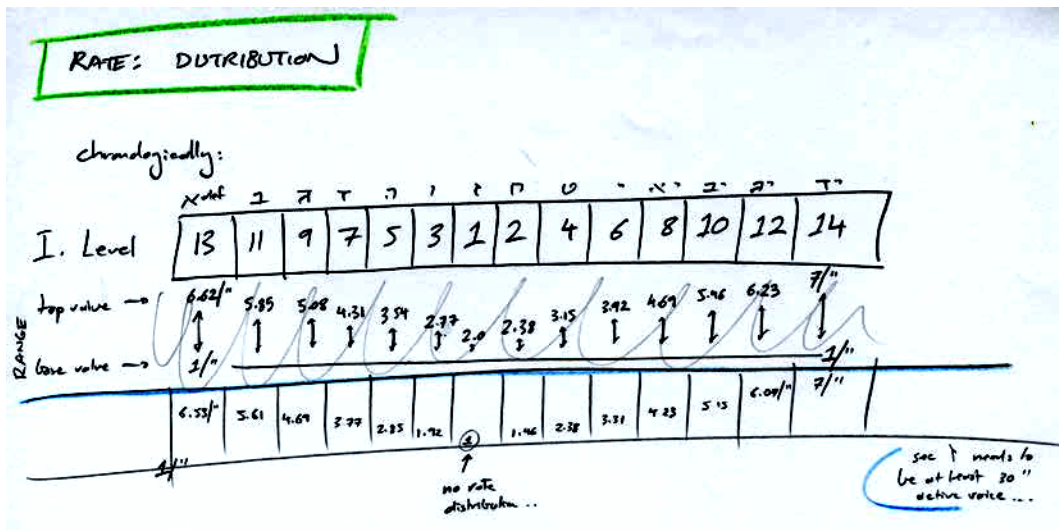 RATE: DISTRIBUTION
chronologically:
א ב ג ד ה ו ז ח ט י יא יב יג יד
I. Level 13 11 9 7 5 3 1 2 4 6 8 10 12 14
top value → 6.62/" 5.85 5.08 4.31 3.54 2.77 2.0 2.38 3.15 3.92 4.69 5.46 6.23 7/"
RANGE
base value → 1/" 1/"
6.53/" 5.61 4.69 3.77 2.85 1.92 1 1.46 2.38 3.31 4.23 5.15 6.07/" 7/"
1/"
↑
no rate
distribution ..
sec needs to
be at least 30"
active voice ...